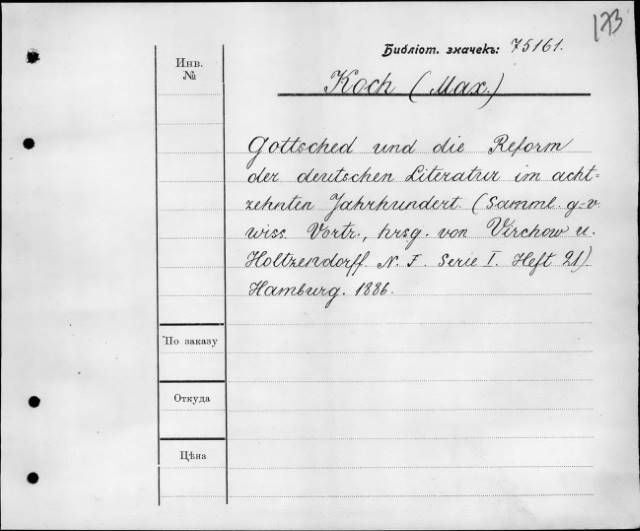 173
Библіот. значекъ: 75161.
Инв.
№
Koch (Max.)
Gottsched und die Reform
der deutschen Literatur im acht=
zehnten Jahrhundert. (Samml. g-v.
wiss. Vortr., hrsg. von Virchow u.
Holtzendorff. N. F. Serie I. Heft 21)
Hamburg. 1886.
По заказу
Откуда
Цѣна